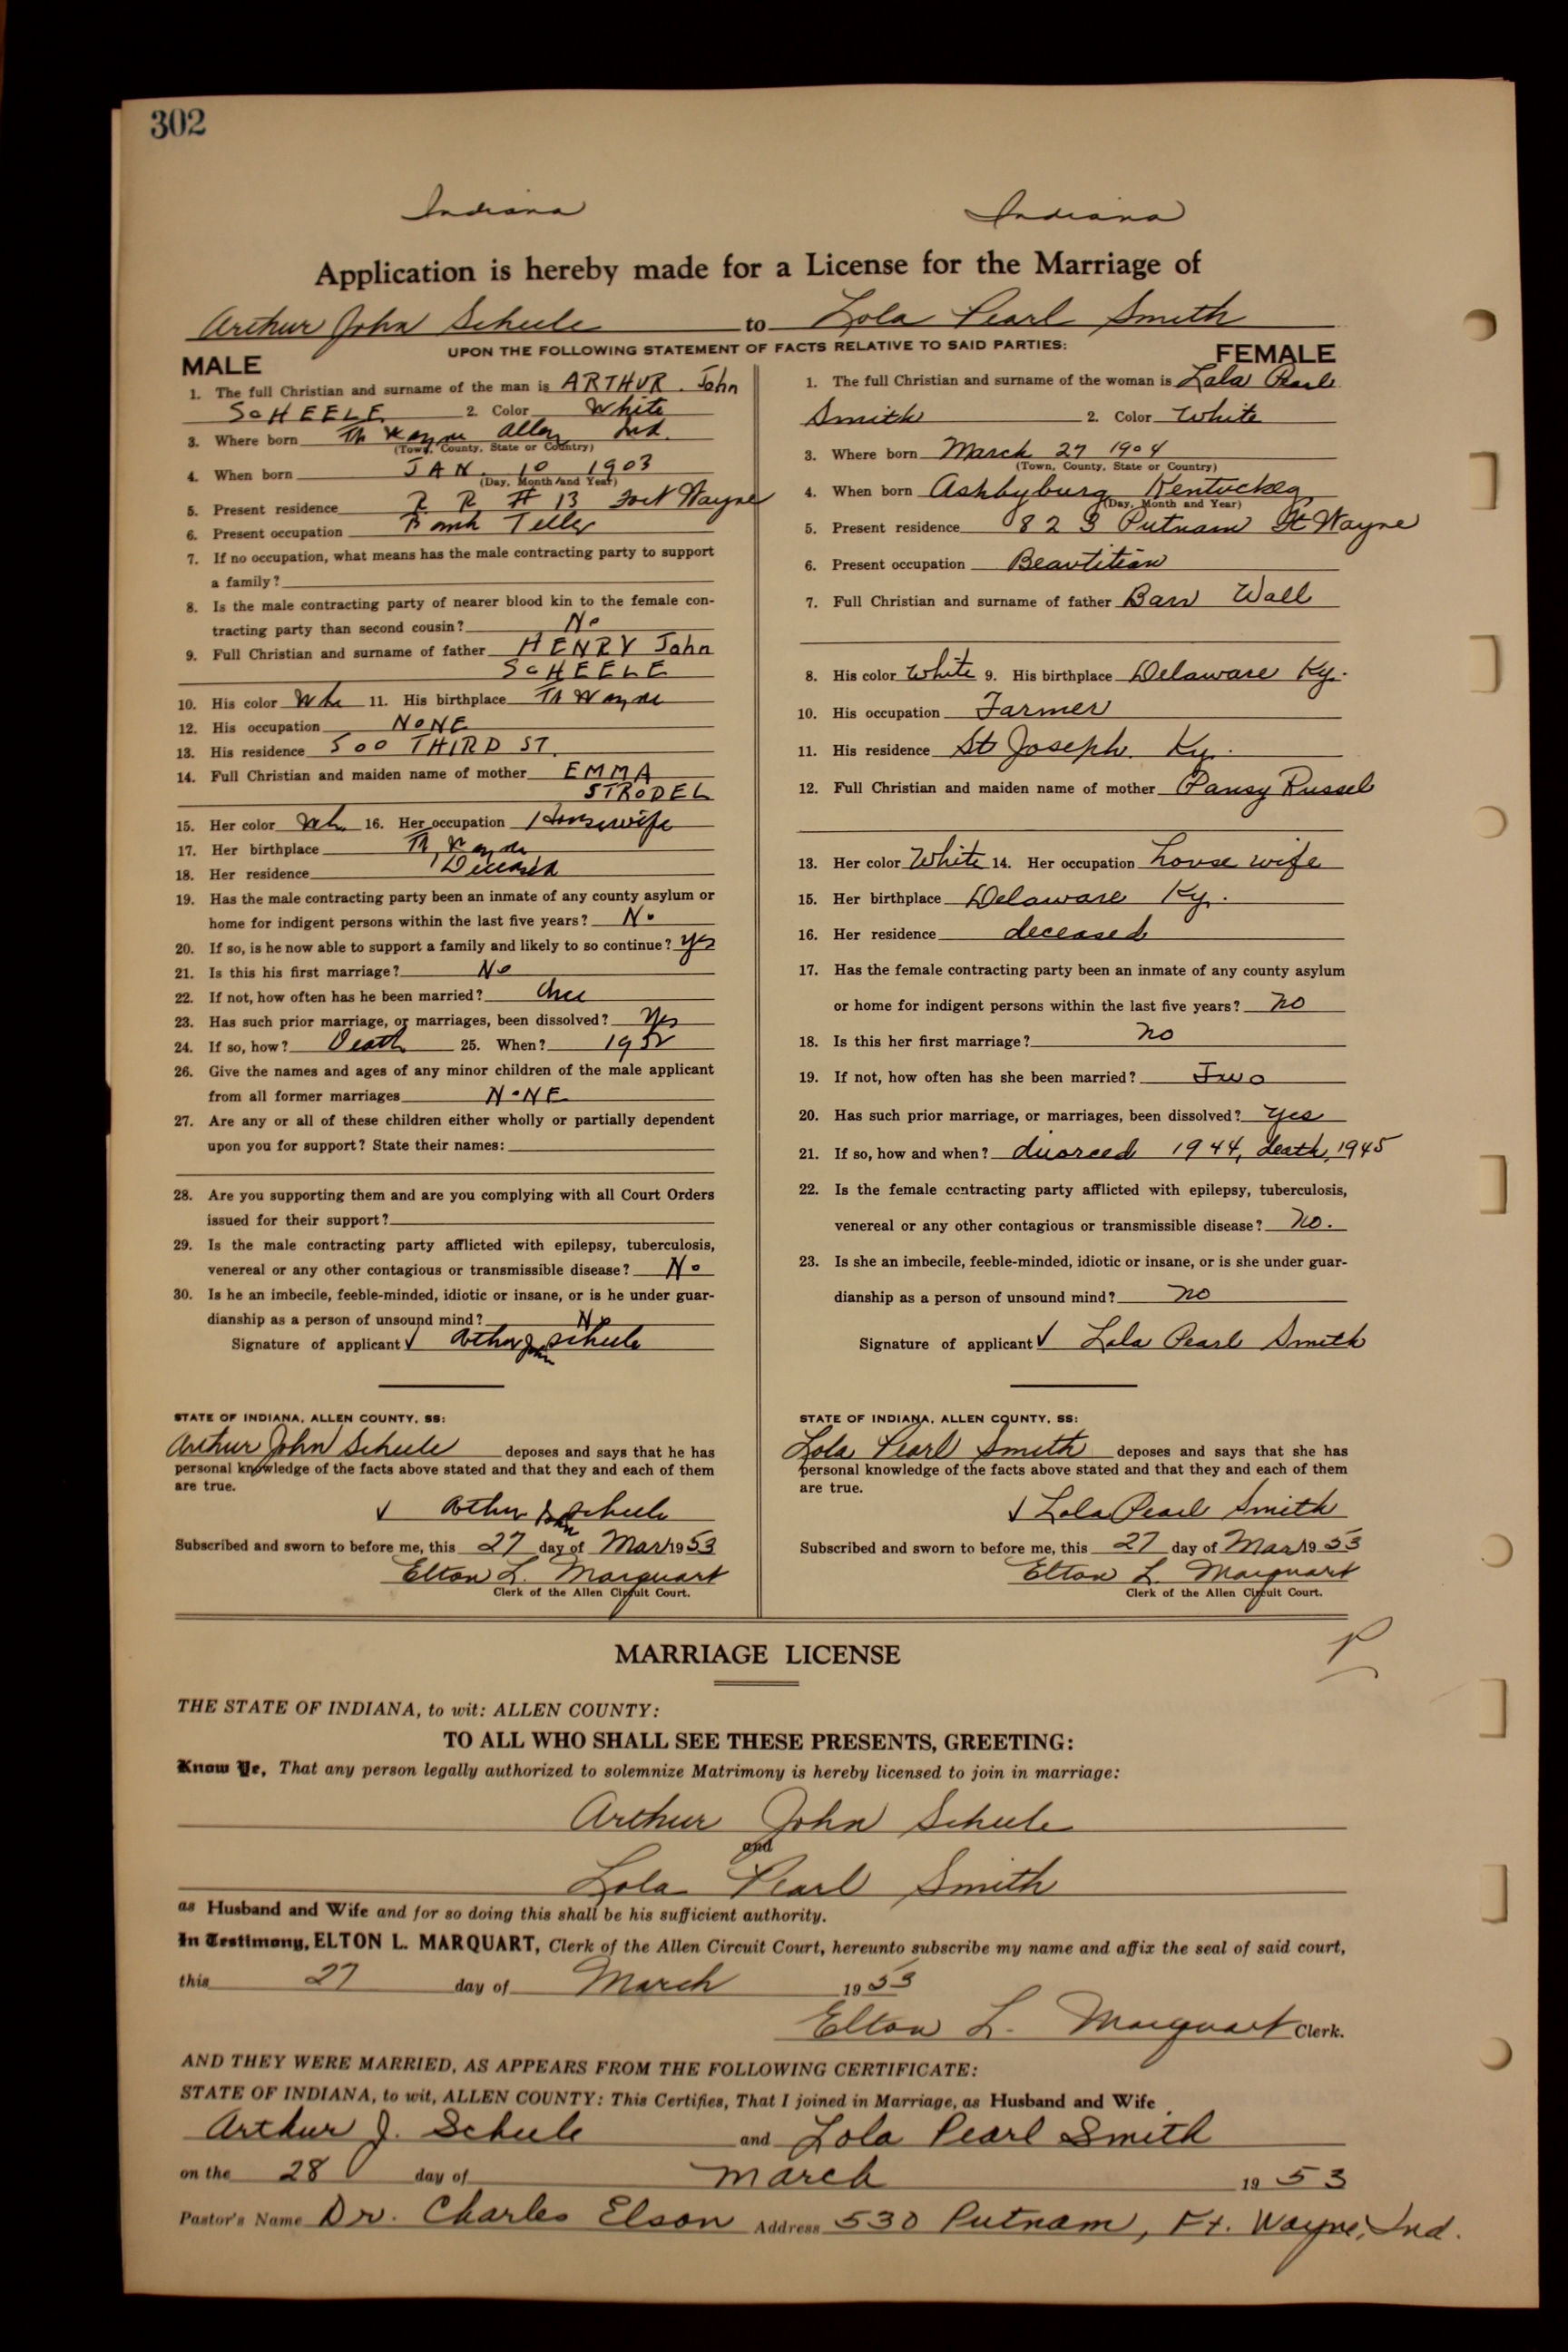 302
Indiana Indiana
Application is hereby made for a License for the Marriage of
Arthur John Scheele to Lola Pearl Smith
UPON THE FOLLOWING STATEMENT OF FACTS RELATIVE TO SAID PARTIES:
MALE
1. The full Christian and surname of the man is ARTHUR. John
SCHEELE 2. Color White
3. Where born Ft Wayne Allen Ind.
(Town, County, State or Country)
4. When born JAN. 10 1903
(Day, Month and Year)
5. Present residence R R # 13 Fort Wayne
6. Present occupation Bank Teller
7. If no occupation, what means has the male contracting party to support
a family?
8. Is the male contracting party of nearer blood kin to the female con-
tracting party than second cousin? No
9. Full Christian and surname of father HENRY John
SCHEELE
10. His color Wh 11. His birthplace Ft Wayne
12. His occupation NONE
13. His residence 500 THIRD ST.
14. Full Christian and maiden name of mother EMMA
STRODEL
15. Her color Wh. 16. Her occupation Housewife
17. Her birthplace Ft Wayne
18. Her residence Deceased
19. Has the male contracting party been an inmate of any county asylum or
home for indigent persons within the last five years? No
20. If so, is he now able to support a family and likely to so continue? yes
21. Is this his first marriage? No
22. If not, how often has he been married? Once
23. Has such prior marriage, or marriages, been dissolved? Yes
24. If so, how? Death 25. When? 1952
26. Give the names and ages of any minor children of the male applicant
from all former marriages NONE
27. Are any or all of these children either wholly or partially dependent
upon you for support? State their names:
28. Are you supporting them and are you complying with all Court Orders
issued for their support?
29. Is the male contracting party afflicted with epilepsy, tuberculosis,
venereal or any other contagious or transmissible disease? No
30. Is he an imbecile, feeble-minded, idiotic or insane, or is he under guar-
dianship as a person of unsound mind? No
Signature of applicant √ Arthur John Scheele
STATE OF INDIANA, ALLEN COUNTY, SS:
Arthur John Scheele deposes and says that he has
personal knowledge of the facts above stated and that they and each of them
are true.
√ Arthur John Scheele
Subscribed and sworn to before me, this 27 day of Mar 1953
Elton L. Marquart
Clerk of the Allen Circuit Court.
FEMALE
1. The full Christian and surname of the woman is Lola Pearl
Smith 2. Color White
3. Where born March 27 1904
(Town, County, State or Country)
4. When born Ashbyburg Kentuckey
(Day, Month and Year)
5. Present residence 823 Putnam Ft Wayne
6. Present occupation Beautitian
7. Full Christian and surname of father Barr Wall
8. His color White 9. His birthplace Delaware Ky.
10. His occupation Farmer
11. His residence St Joseph. Ky.
12. Full Christian and maiden name of mother Pansy Russel
13. Her color White 14. Her occupation house wife
15. Her birthplace Delaware Ky.
16. Her residence deceased
17. Has the female contracting party been an inmate of any county asylum
or home for indigent persons within the last five years? no
18. Is this her first marriage? no
19. If not, how often has she been married? Two
20. Has such prior marriage, or marriages, been dissolved? yes
21. If so, how and when? divorced 1944, death, 1945
22. Is the female contracting party afflicted with epilepsy, tuberculosis,
venereal or any other contagious or transmissible disease? no.
23. Is she an imbecile, feeble-minded, idiotic or insane, or is she under guar-
dianship as a person of unsound mind? no
Signature of applicant √ Lola Pearl Smith
STATE OF INDIANA, ALLEN COUNTY, SS:
Lola Pearl Smith deposes and says that she has
personal knowledge of the facts above stated and that they and each of them
are true.
√ Lola Pearl Smith
Subscribed and sworn to before me, this 27 day of Mar 1953
Elton L. Marquart
Clerk of the Allen Circuit Court.
MARRIAGE LICENSE
THE STATE OF INDIANA, to wit: ALLEN COUNTY:
TO ALL WHO SHALL SEE THESE PRESENTS, GREETING:
Know Ye, That any person legally authorized to solemnize Matrimony is hereby licensed to join in marriage:
Arthur John Scheele
and
Lola Pearl Smith
as Husband and Wife and for so doing this shall be his sufficient authority.
In Testimony, ELTON L. MARQUART, Clerk of the Allen Circuit Court, hereunto subscribe my name and affix the seal of said court,
this 27 day of March 1953
Elton L. Marquart Clerk.
AND THEY WERE MARRIED, AS APPEARS FROM THE FOLLOWING CERTIFICATE:
STATE OF INDIANA, to wit, ALLEN COUNTY: This Certifies, That I joined in Marriage, as Husband and Wife
Arthur J. Scheele and Lola Pearl Smith
on the 28 day of March 1953
Pastor's Name Dr. Charles Elson Address 530 Putnam, Ft. Wayne, Ind.